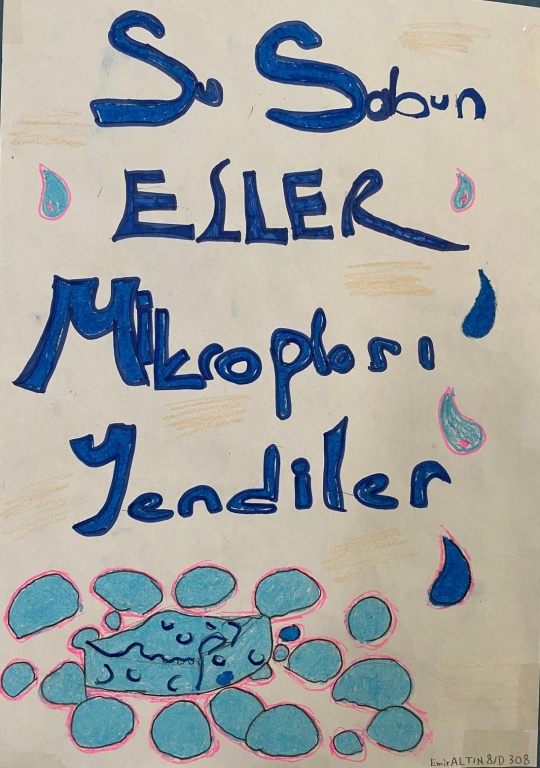 Su Sabun
ELLER
Mikropları
Yendiler
Emir ALTIN 8/D 308